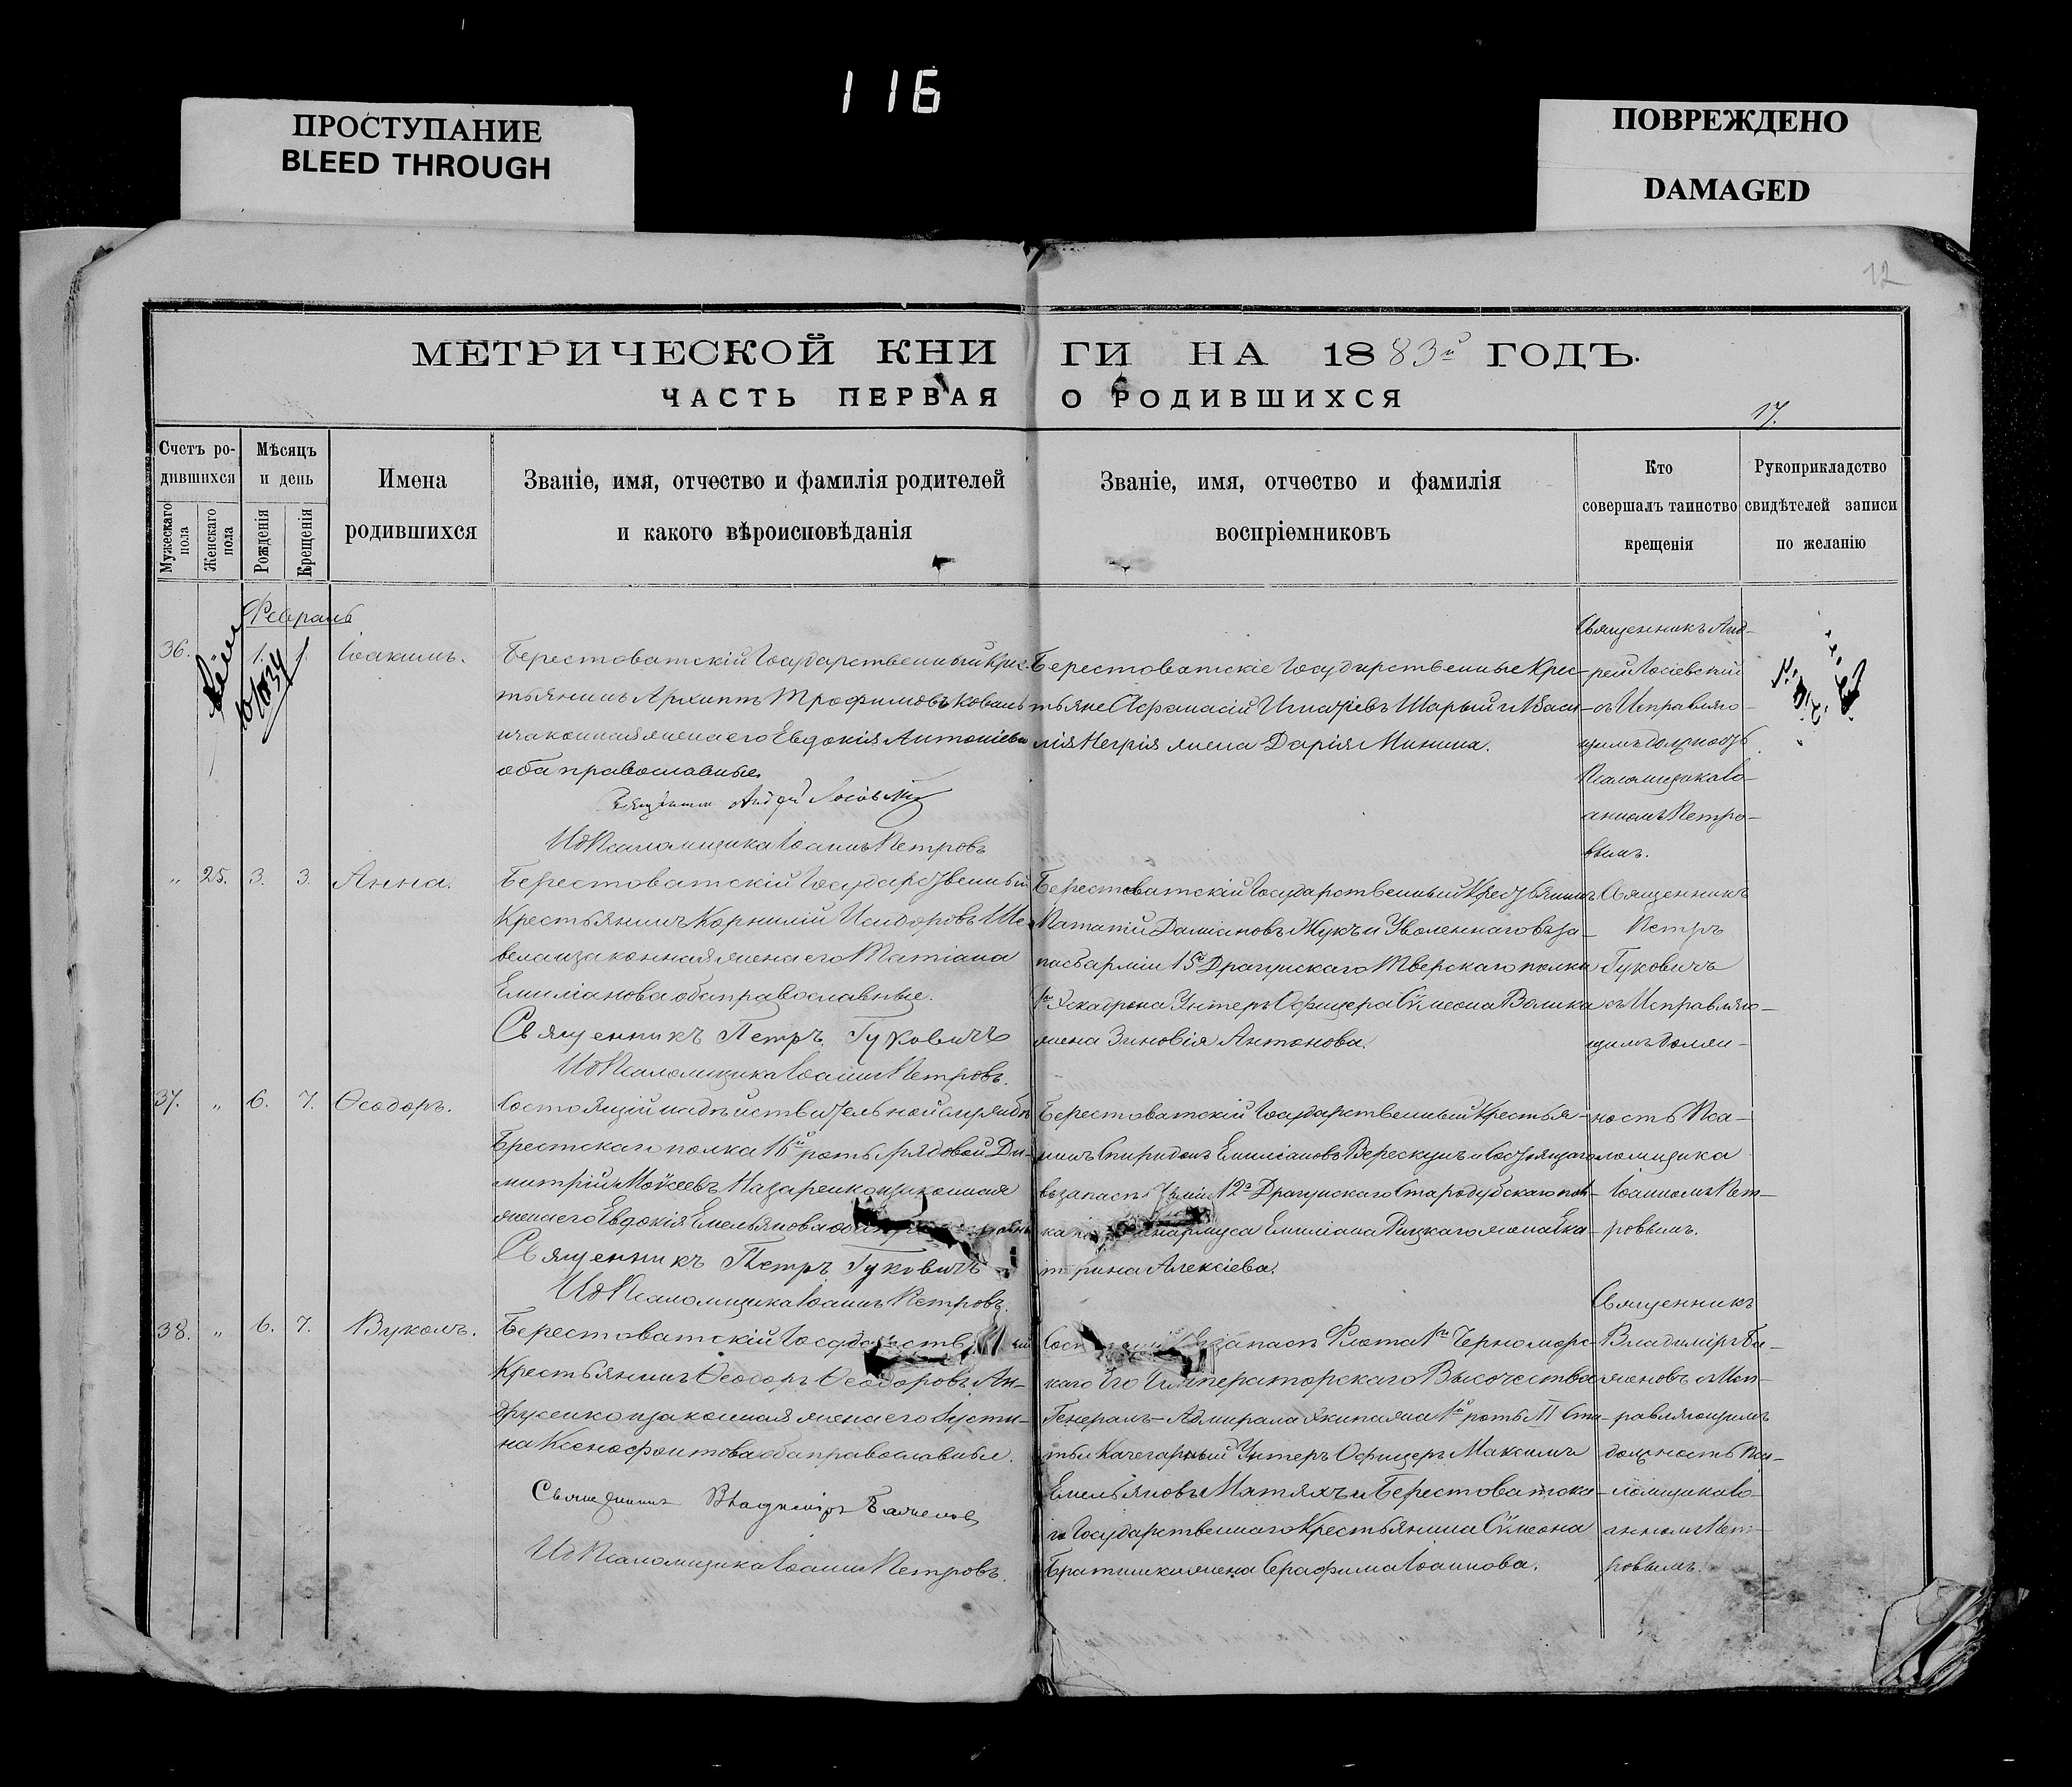 116
ПРОСТУПАНИЕ
BLEED THROUGH
ПОВРЕЖДЕНО
DAMAGED
12
МЕТРИЧЕСКОЙ КНИГИ НА 1883й ГОДЪ.
ЧАСТЬ ПЕРВАЯ О РОДИВШИХСЯ
17.
Счетъ родившихся
Мужескаго пола
Женскаго пола
Мѣсяцъ и день
Рожденія
Крещенія
Имена
родившихся
Званіе, имя, отчество и фамилія родителей
и какого вѣроисповѣданія
Званіе, имя, отчество и фамилія
воспріемниковъ
Кто
совершалъ таинство
крещенія
Рукоприкладство
свидѣтелей записи
по желанію
Февраль
36. 1. 1. Іоакимъ.
Берестоватскій Государственный Крес
тьянинъ Архиппъ Трофимовъ Коваль
и законная жена его Евдокія Антоніева
оба православные.
Священникъ Андрей Лосіевскій
Ид Псаломщика Іоаннъ Петровъ
Берестоватскіе Государственные Крес-
тьяне Афанасій Игнатіевъ Шарый и Васи-
лія Негрія жена Дарія Минина.
Священникъ Анд-
рей Лосіевскій
съ Исправляю-
щимъ должность
Псаломщика Іо-
анномъ Петро-
вымъ.
" 25. 3. 3. Анна.
Берестоватскій Государственный
Крестьянинъ Корнилій Исидоровъ Ше-
вела и законная жена его Татіана
Емиліанова оба православные.
Священникъ Петръ Гуковичъ
Ид Псаломщика Іоаннъ Петровъ.
Берестоватскій Государственный Крестьянинъ
Потапій Даміановъ Жукъ и Уволеннаго въ за-
пасъ арміи 15го Драгунскаго Тверскаго полка
1го Эскадрона Унтеръ Офицера Сѵмеона Волика
жена Зиновія Антонова.
Священникъ
Петръ
Гуковичъ
съ Исправляю-
щимъ долж-
37. " 6. 7. Ѳеодоръ.
Состоящій на дѣйствительной службѣ
Брестскаго полка 16й роты рядовой Ди-
митрій Моѵсеевъ Назаренко и законная
жена его Евдокія Емельянова оба
Священникъ Петръ Гуковичъ
Ид Псаломщика Іоаннъ Петровъ.
Берестоватскій Государственный Крестья-
нинъ Спиридонъ Емиліановъ Верескунъ и Состоящаго
въ запасѣ арміи 12го Драгунскаго Стародубскаго пол-
ка Емиліана Рицкаго жена Ека-
трина Алексіева.
ность Пса-
ломщика
Іоанномъ Пет-
ровымъ.
38. " 6. 7. Вуколъ.
Берестоватскій
Крестьянинъ Ѳеодоръ Ѳеодоровъ Ан-
друсенко и законная жена его Іусти-
на Ксенофонтова оба православные.
Священникъ Владиміръ Баженовъ
Ид Псаломщика Іоаннъ Петровъ.
запасѣ Флота 1го Черноморс-
каго Его Императорскаго Высочества
Генералъ-Адмирала Экипажа 1й роты II Ста-
тьи Качегарный Унтеръ Офицеръ Максимъ
Емельяновъ Матяхъ и Берестоватска-
го Государственнаго Крестьянина Сѵмеона
Братишки жена Серафима Іоаннова.
Священникъ
Владиміръ Ба-
женовъ съ Исп-
равляющимъ
должность Пса-
ломщика Іо-
анномъ Пет-
ровымъ.